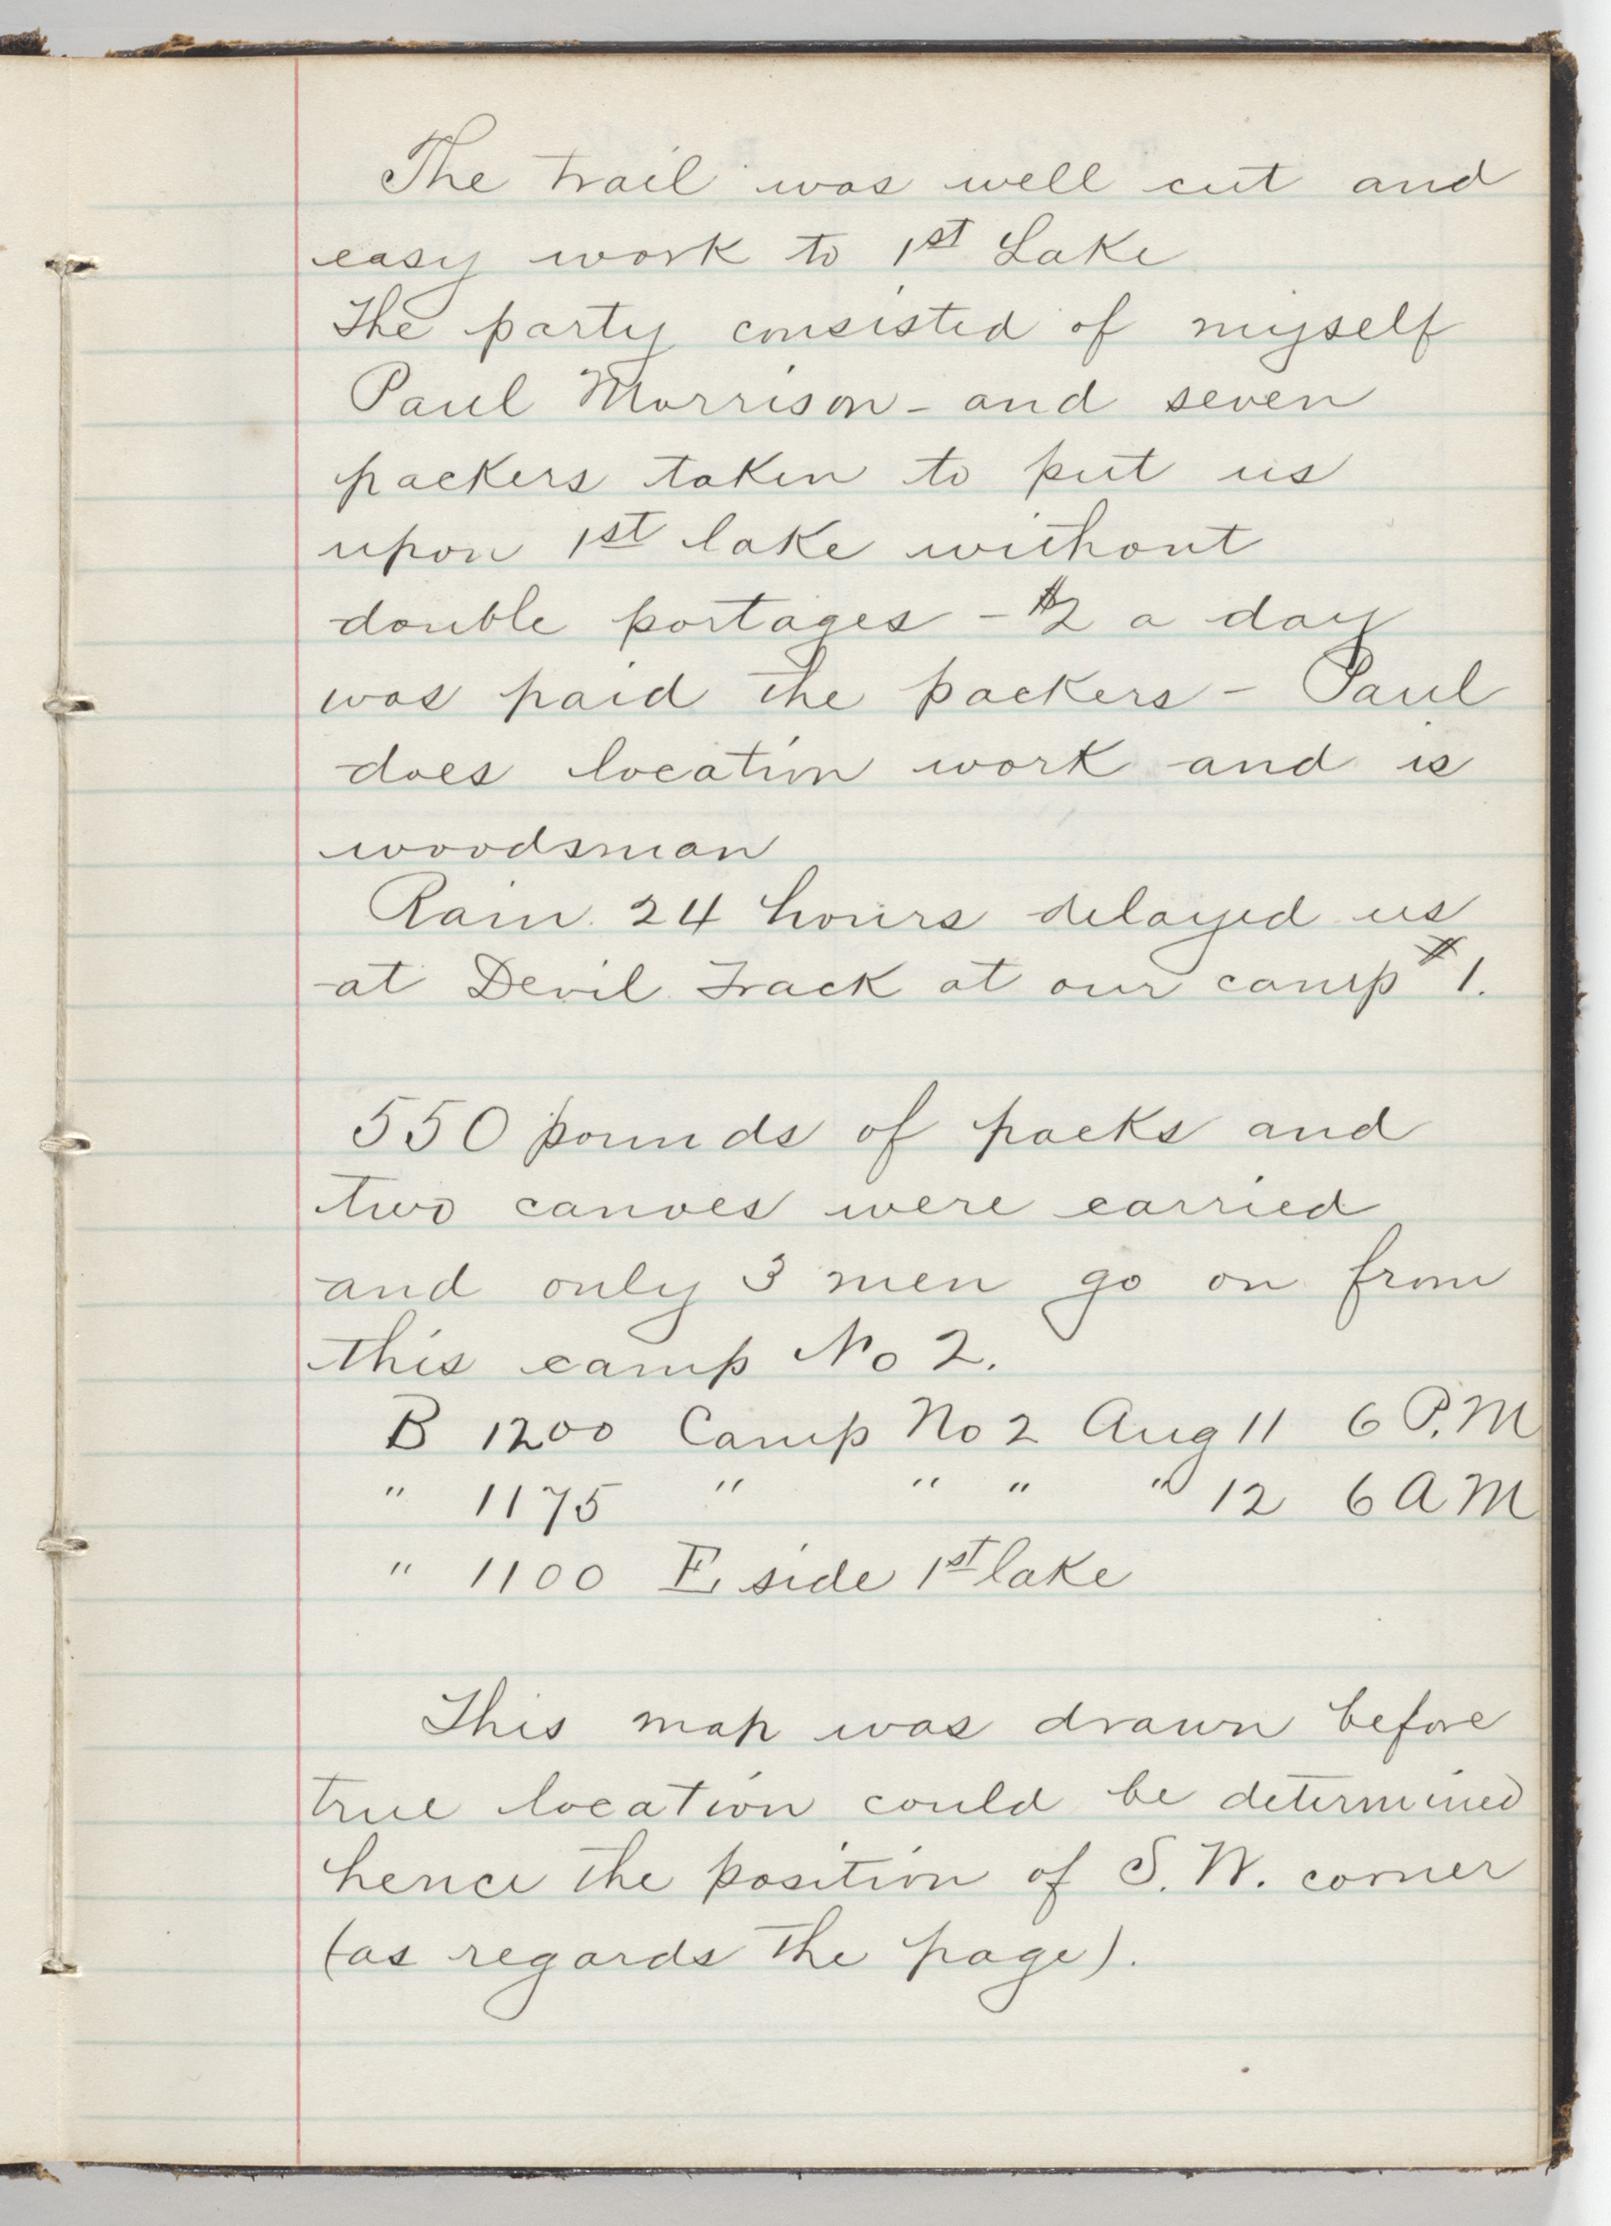 The trail was well cut and
easy work to 1st Lake
The party consisted of myself
Paul Morrison - and seven
packers taken to put us
upon 1st lake without
double portages - $2 a day
was paid the packers - Paul
does location work and is
woodsman
Rain 24 hours delayed us
at Devil Track at our camp #1.
550 pounds of packs and
two canoes were carried
and only 3 men go on from
this camp No 2.
B 1200 Camp No 2 Aug 11 6 P.M
" 1175 " " " " 12 6 A M
" 1100 E side 1st lake
This map was drawn before
true location could be determined
hence the position of S. W. corner
(as regards the page).